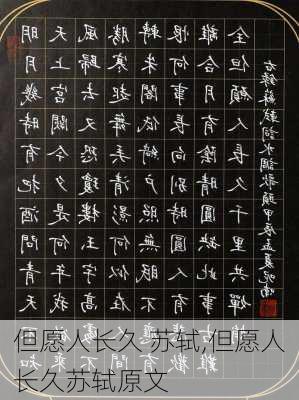 明月幾時有把酒問青天不知
天上宮闕今夕是何年我欲乘
風歸去又恐瓊樓玉宇高處不
勝寒起舞弄清影何似在人間
轉朱閣低綺戶照無眠不應有
恨何事長向別時圓人有悲歡
離合月有陰晴圓缺此事古難
全但願人長久千里共嬋娟
右錄蘇軾詞水調歌頭甲辰孟夏
但愿人长久 苏轼,但愿人
长久苏轼原文